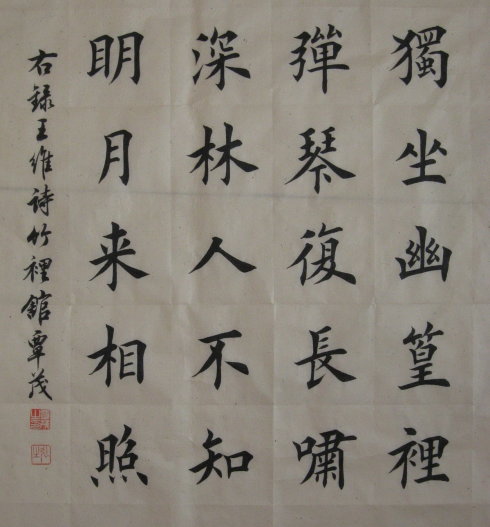 獨坐幽篁裡
彈琴復長嘯
深林人不知
明月来相照
右録王維詩竹裡館覃茂